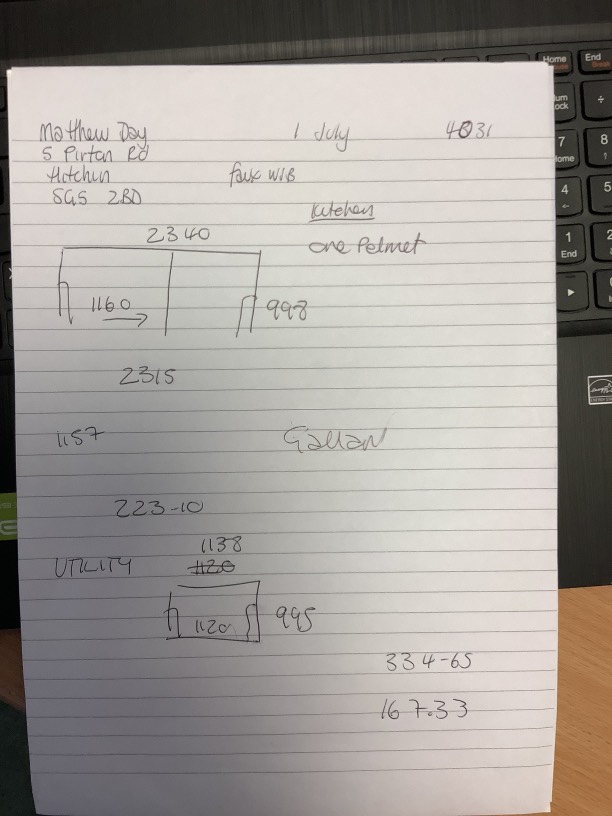 Matthew Day 1 July 4031
5 Pirton Rd
Hitchin faux W/B
SG5 2BD
Kitchen
2340
one Pelmet
1160
998
2315
1157
223-10
1138
UTILITY 1120
1120 995
334-65
167.33
Home End
7 8
Home
4 5
1
End